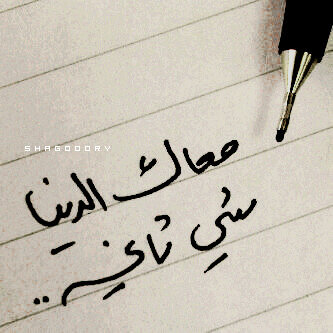 SHAGOOORY
معاك الدينا
شي ثاني ..